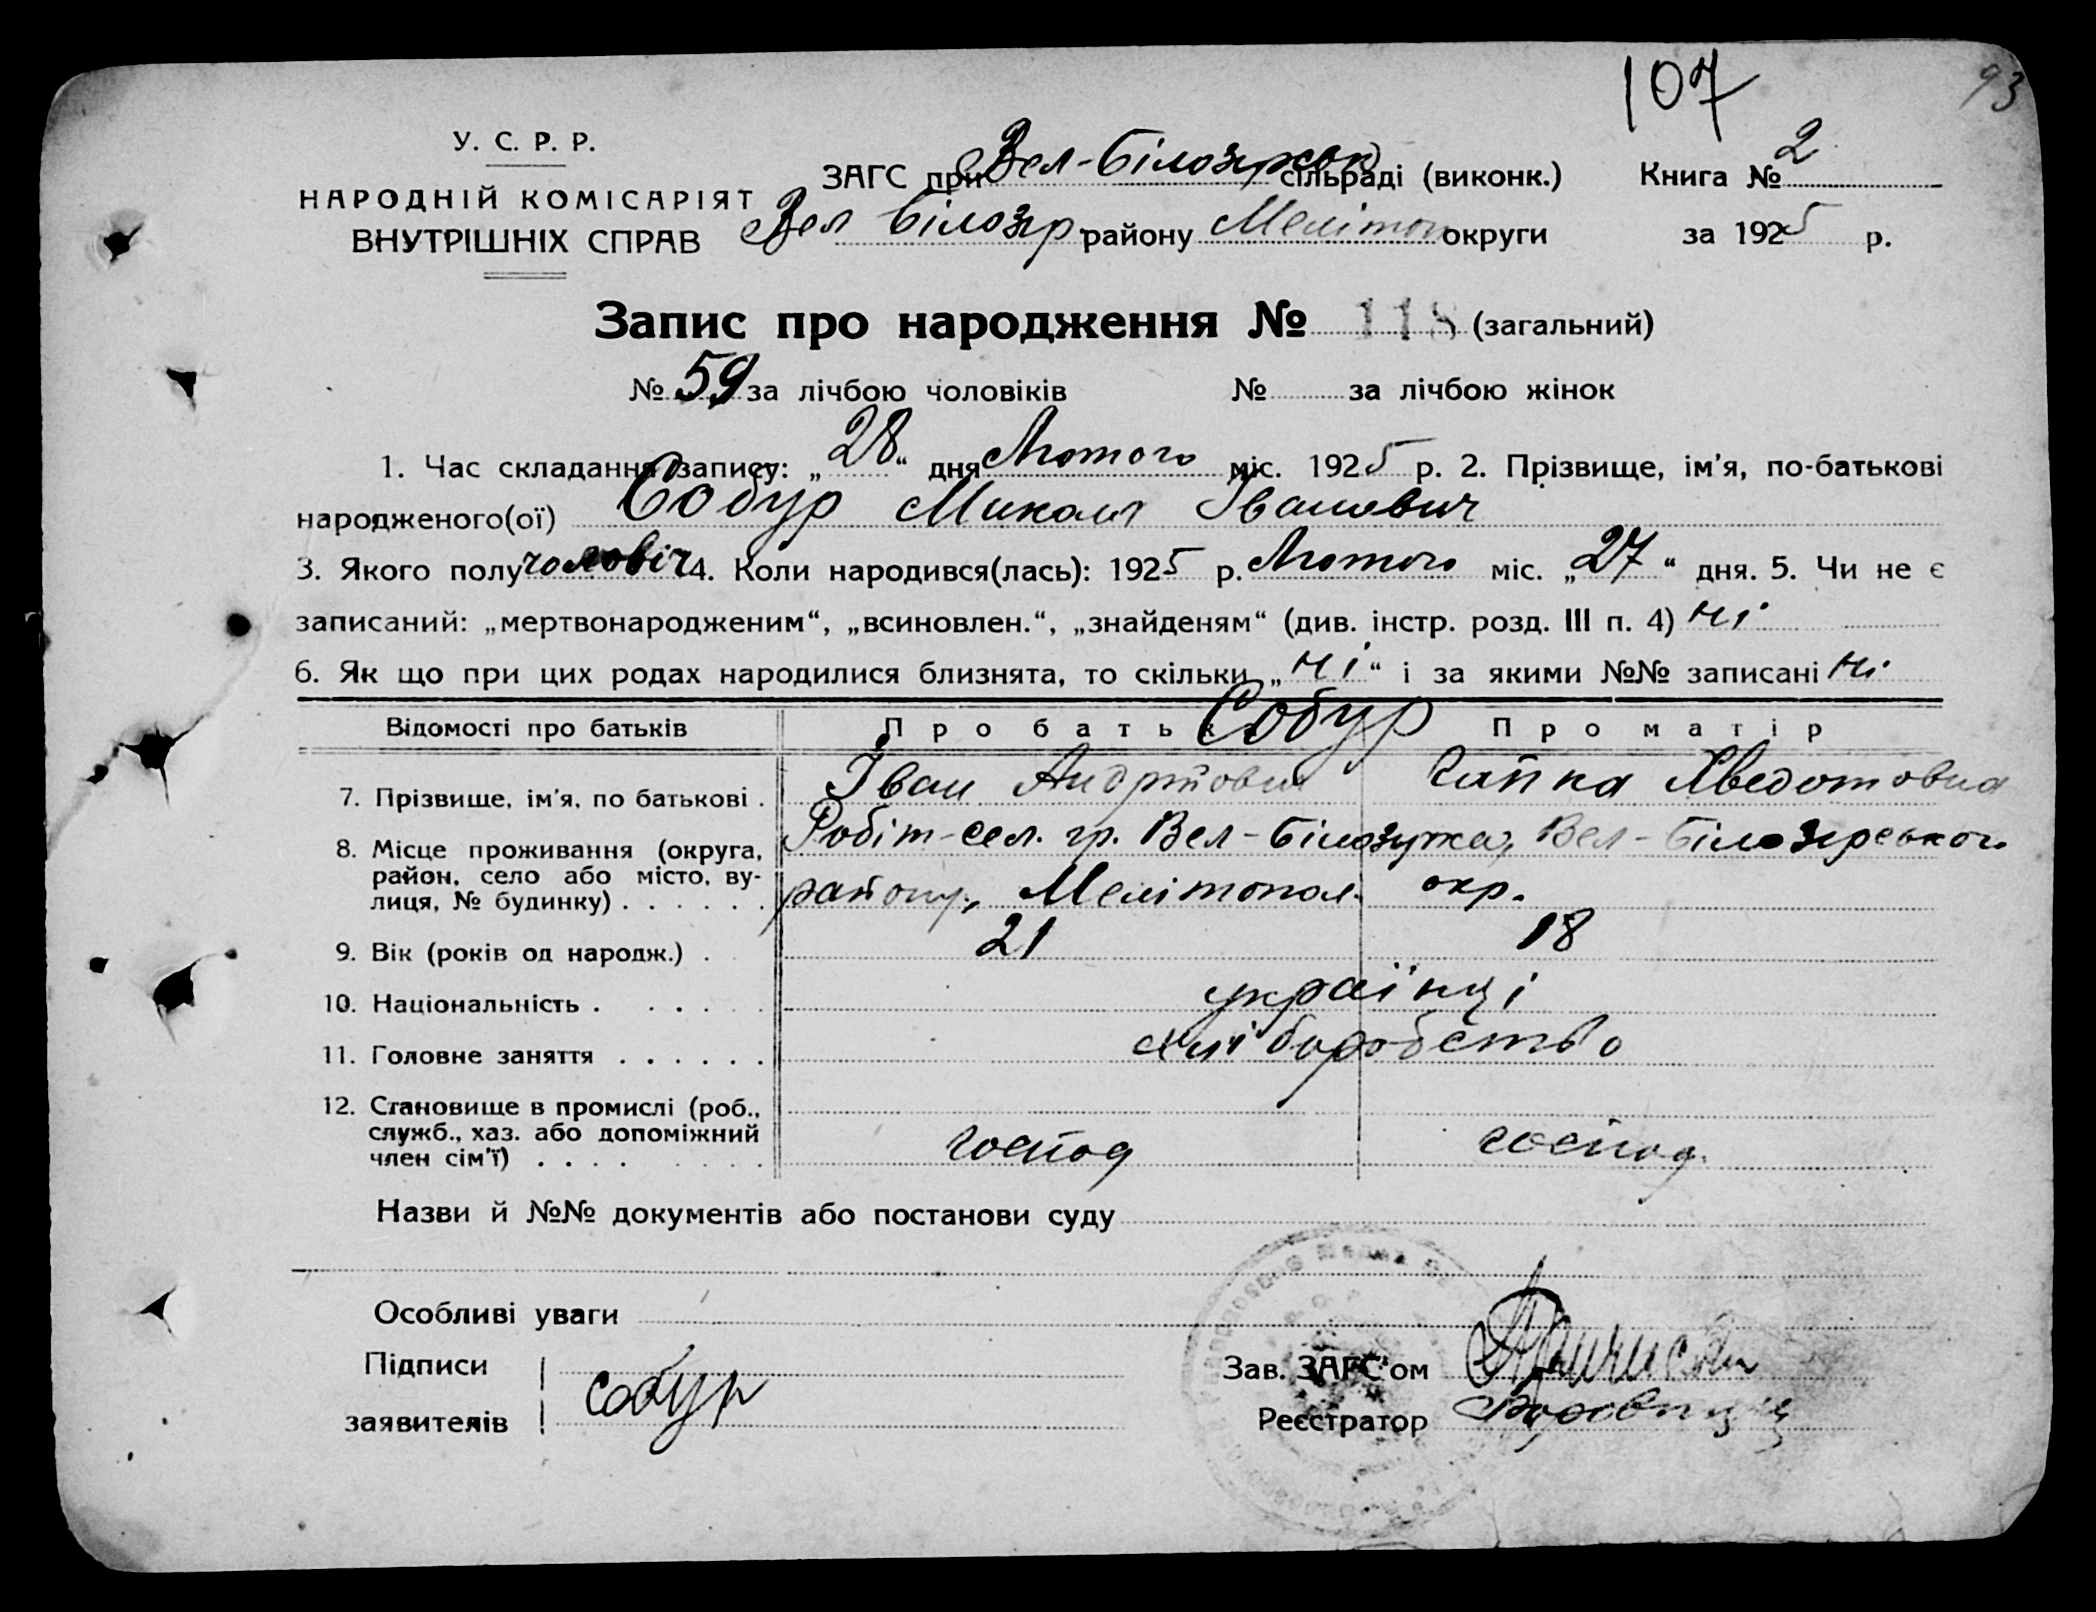 107
93
У. С. Р. Р.
НАРОДНІЙ КОМІСАРІЯТ
ВНУТРІШНІХ СПРАВ
ЗАГС при Вел-Білозірськ сільраді (виконк.) Книга № 2
Вел Білозір. району Мелітоп округи за 1925 р.
Запис про народження № 118 (загальний)
№ 59 за лічбою чоловіків № за лічбою жінок
1. Час складання запису: „28“ дня Лютого міс. 1925 р. 2. Прізвище, ім'я, по-батькові
народженого(ої) Собур Микола Іванович
3. Якого полу чоловіч 4. Коли народився(лась): 1925 р. Лютого міс. „27“ дня. 5. Чи не є
записаний: „мертвонародженим“, „всиновлен.“, „знайденям“ (див. інстр. розд. III п. 4) ні
6. Як що при цих родах народилися близнята, то скільки „ні“ і за якими №№ записані ні
Відомості про батьків Про батька Про матір
Собур
7. Прізвище, ім'я, по батькові . Іван Андрійович Гапка Хведотовна
8. Місце проживання (округа, район, село або місто, вулиця, № будинку) . . . . . . Робіт-сел. гр. Вел-Білозірка, Вел-Білозірського
району, Мелітопол. окр.
9. Вік (років од народж.) . 21 18
10. Національність . . . . . українці
11. Головне заняття . . . . . . хліборобство
12. Становище в промислі (роб.,
служб., хаз. або допоміжний
член сім'ї) . . . . . . . . господ господ.
Назви й №№ документів або постанови суду
Особливі уваги
Підписи
заявителів Собур
Зав. ЗАГС'ом
Реєстратор